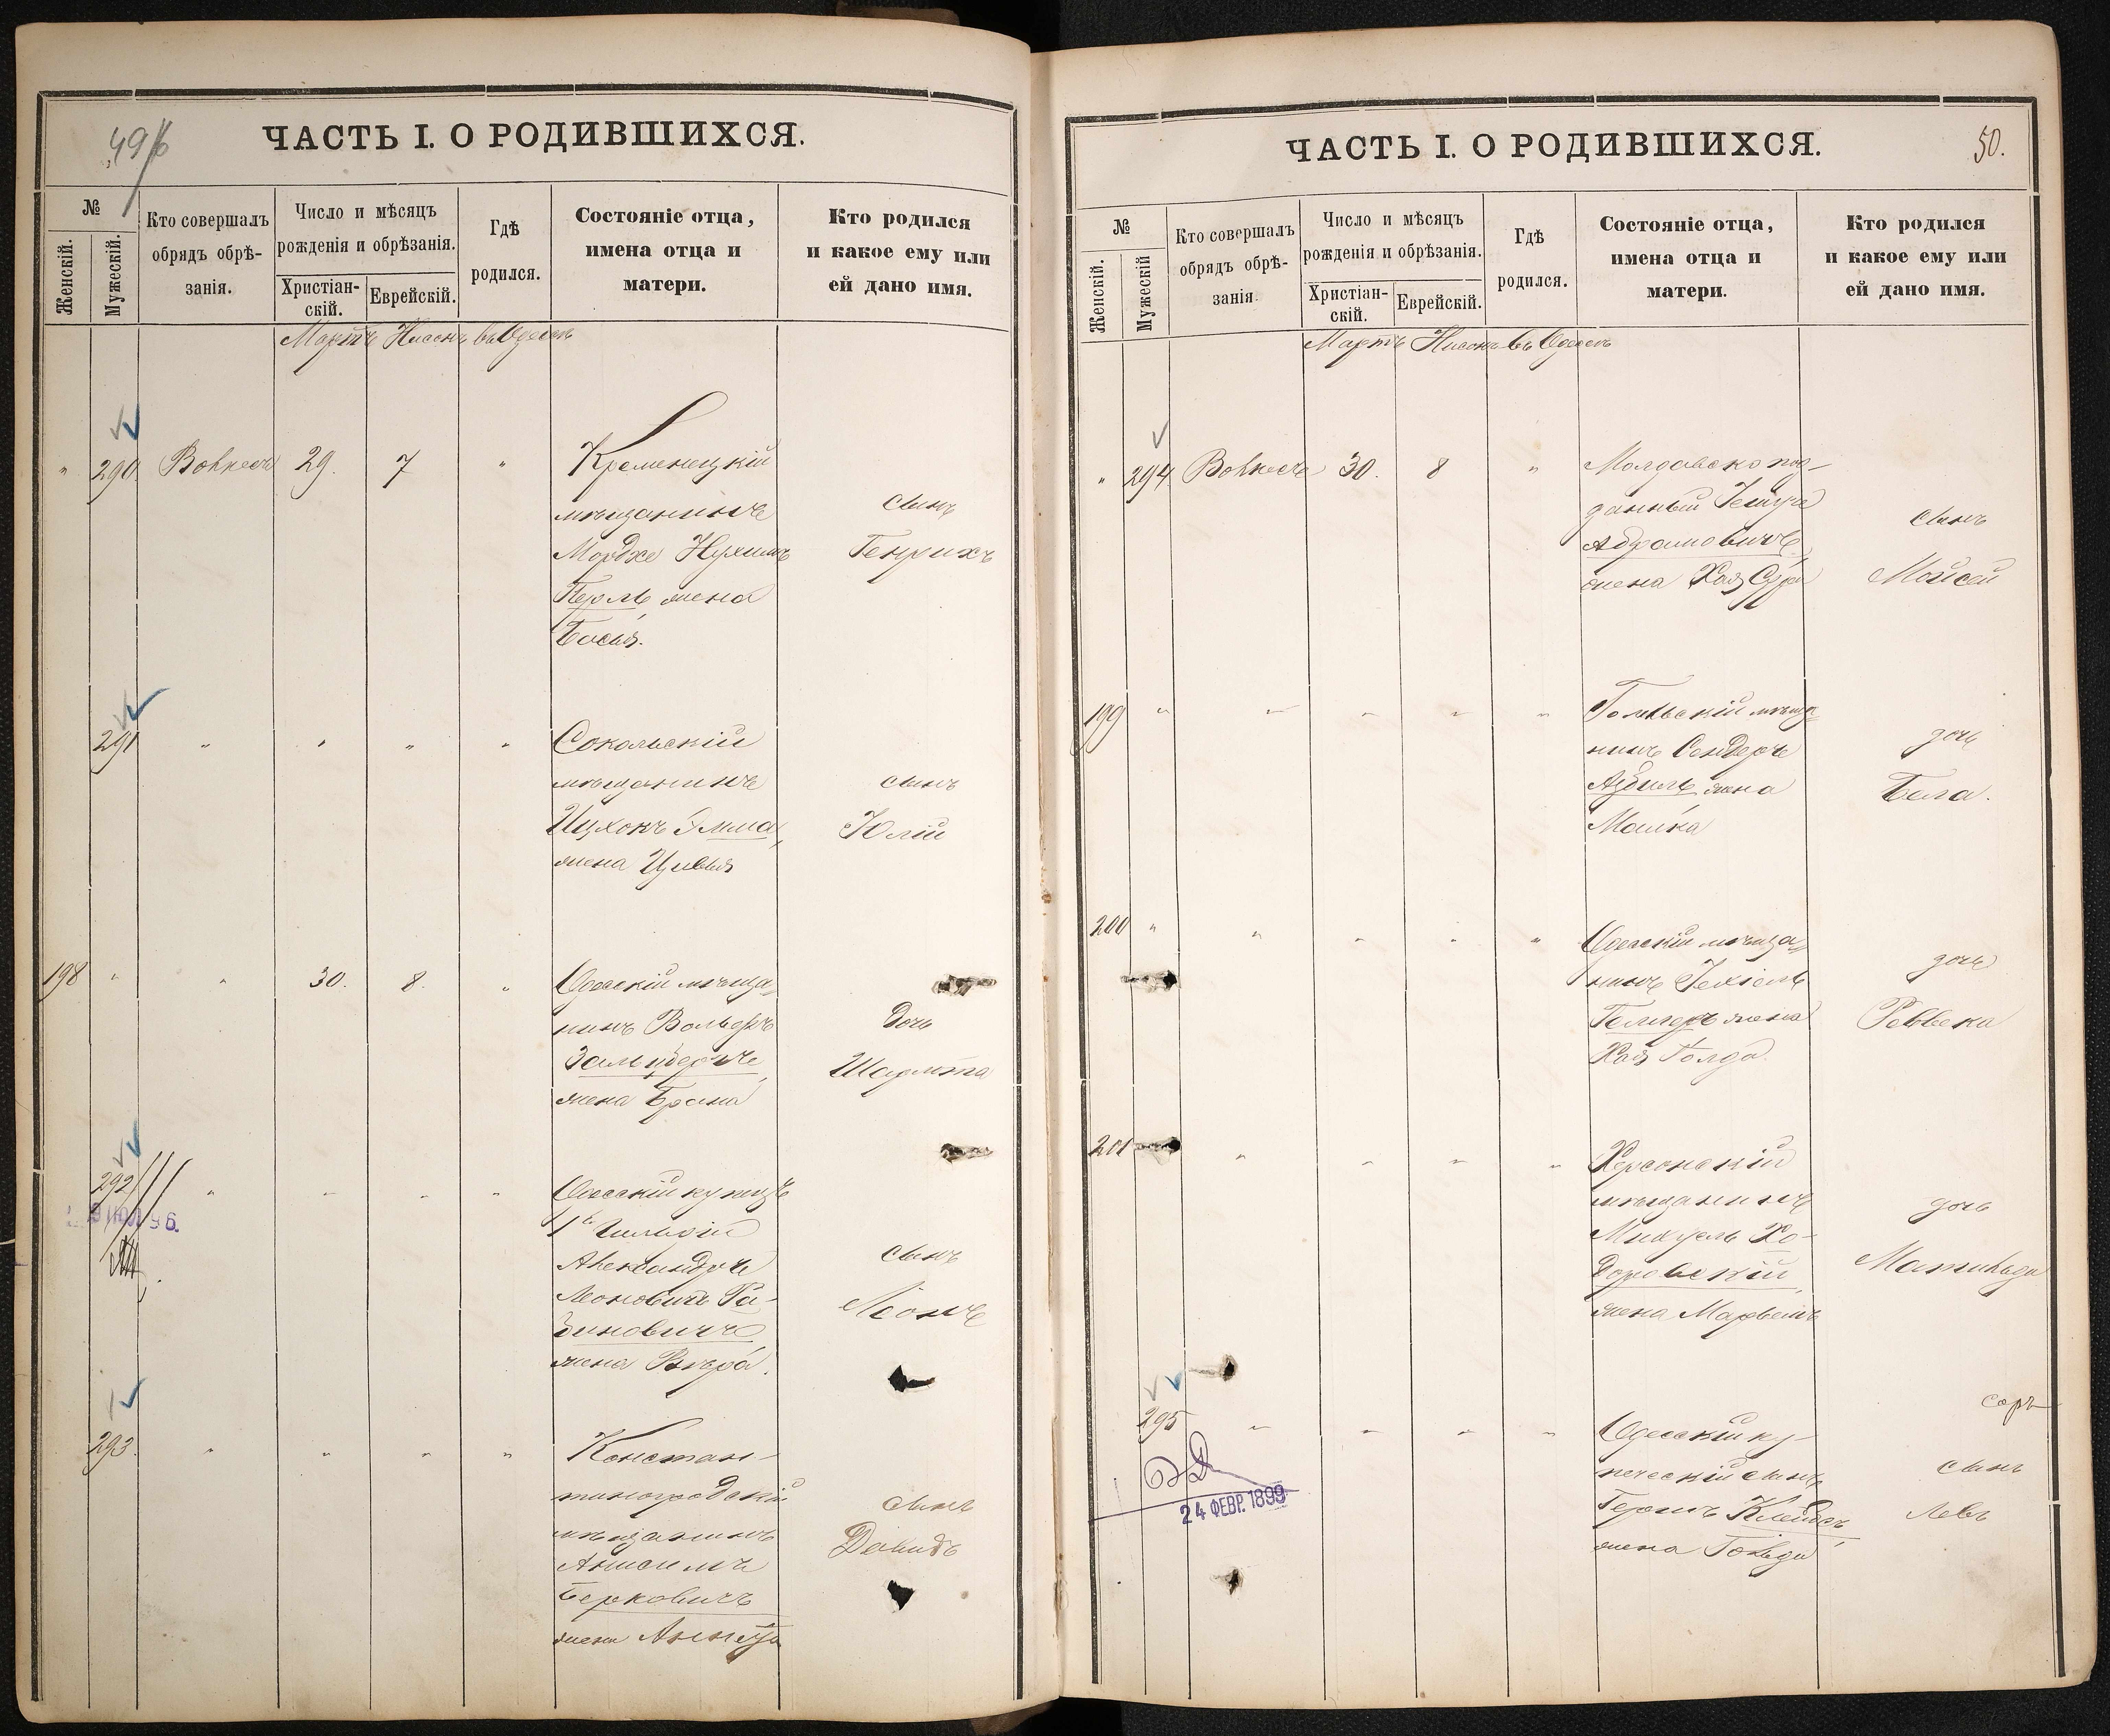 49
ЧАСТЬ I. О РОДИВШИХСЯ.
№
Женскій.
Мужескій.
Кто совершалъ
обрядъ обрѣ-
занія.
Число и мѣсяцъ
рожденія и обрѣзанія.
Христіан-
скій.
Еврейскій.
Гдѣ
родился.
Состояніе отца,
имена отца и
матери.
Кто родился
и какое ему или
ей дано имя.
Мартъ Нисонъ въ Одессѣ
" 290. 29. 7 "
Кременецкій
мѣщанинъ
Мордхе Нухимъ
Перль, жена
Бася.
сынъ
Генрихъ
291 " " " "
Сокольскій
мѣщанинъ
Ицхокъ
жена Цивья
сынъ
Юлій
198 " " 30. 8. "
Одесскій мѣща-
нинъ Вольфъ
жена
дочь
Шарлота
292 " " " "
Одесскій купецъ
1й гильдіи
Александръ
Леоновичъ Ра-
биновичъ
жена Вѣра.
сынъ
Леонъ
96.
293. " " " "
Констан-
тиноградскій
мѣщанинъ
Аншелъ
Берковичъ
жена Аннета
сынъ
Давидъ
ЧАСТЬ I. О РОДИВШИХСЯ.
50.
№
Женскій.
Мужескій
Кто совершалъ
обрядъ обрѣ-
занія.
Число и мѣсяцъ
рожденія и обрѣзанія.
Христіан-
скій.
Еврейскій.
Гдѣ
родился.
Состояніе отца,
имена отца и
матери.
Кто родился
и какое ему или
ей дано имя.
Мартъ Нисонъ въ Одессѣ
" 294 30. 8 "
Молдавско под-
данный
Абрамовичъ,
жена Хая Сура
сынъ
Мойсей
199 " " " " "
мѣща-
нинъ Сендеръ
жена
Малка
дочь
Бела.
200 " " " " "
Одесскій мѣща-
нинъ Іехіель
жена
Хая Голда.
дочь
Реввека
201 " " " "
Херсонскій
мѣщанинъ
Михуель Хо-
доровскій,
жена
дочь
Матильда
295 " " " "
Одесскій ку-
печескій сынъ
Гершъ
жена Гольда
сынъ
Левъ
24 ФЕВР. 1899